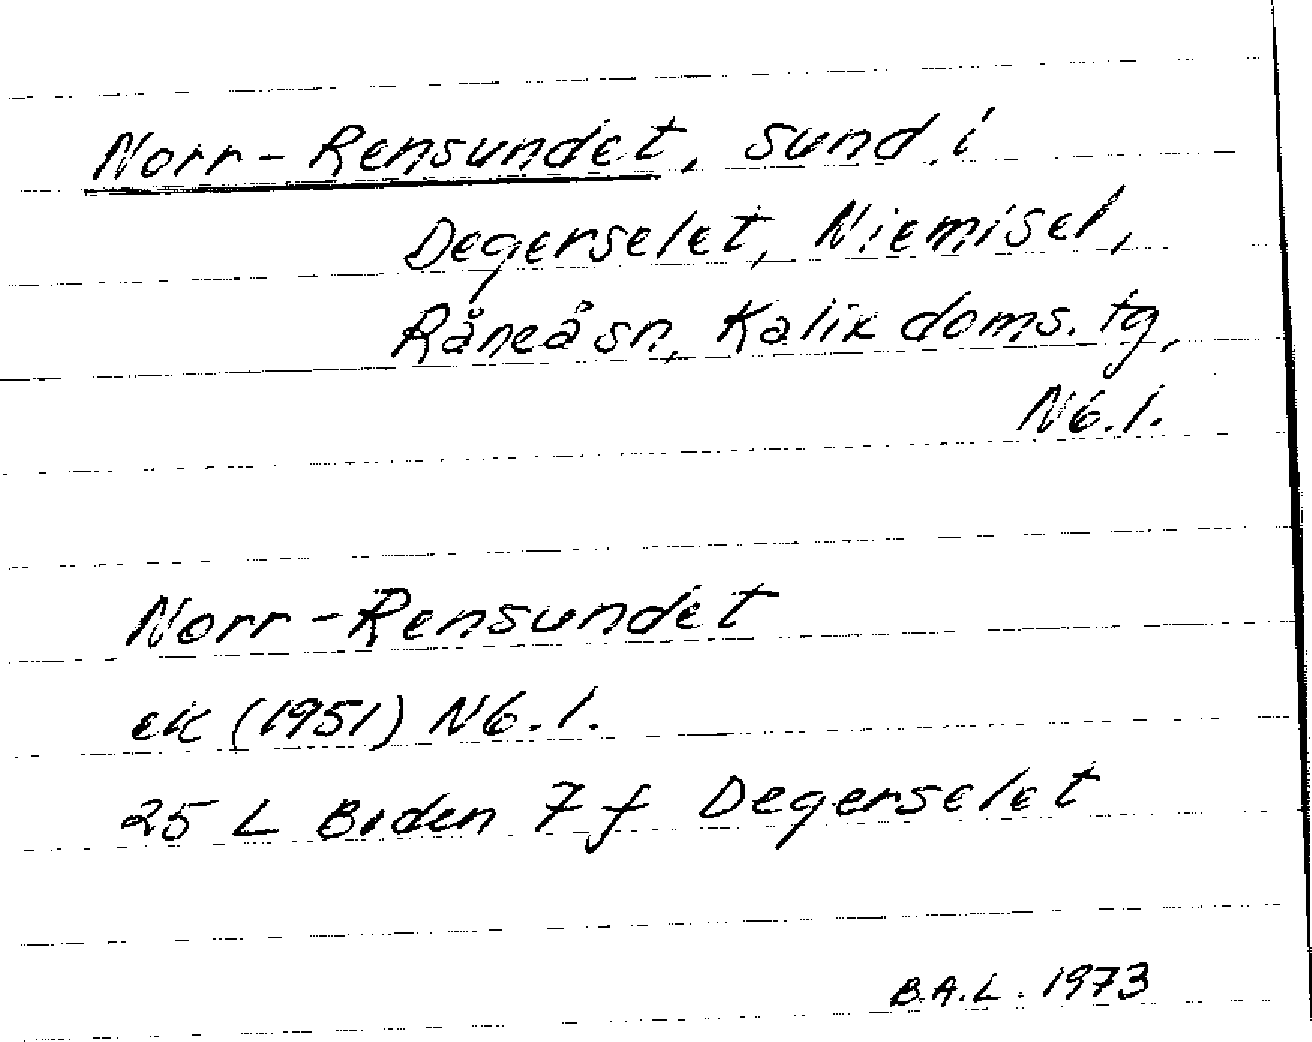 Norr-Rensundet, sund i
Degerselet, Niemisel,
Råneå sn, Kalix doms. tg,
Nb. l.
Norr-Rensundet
ek (1951) Nb. l.
25 L Boden 7 f Degerselet
B.A.L. 1973